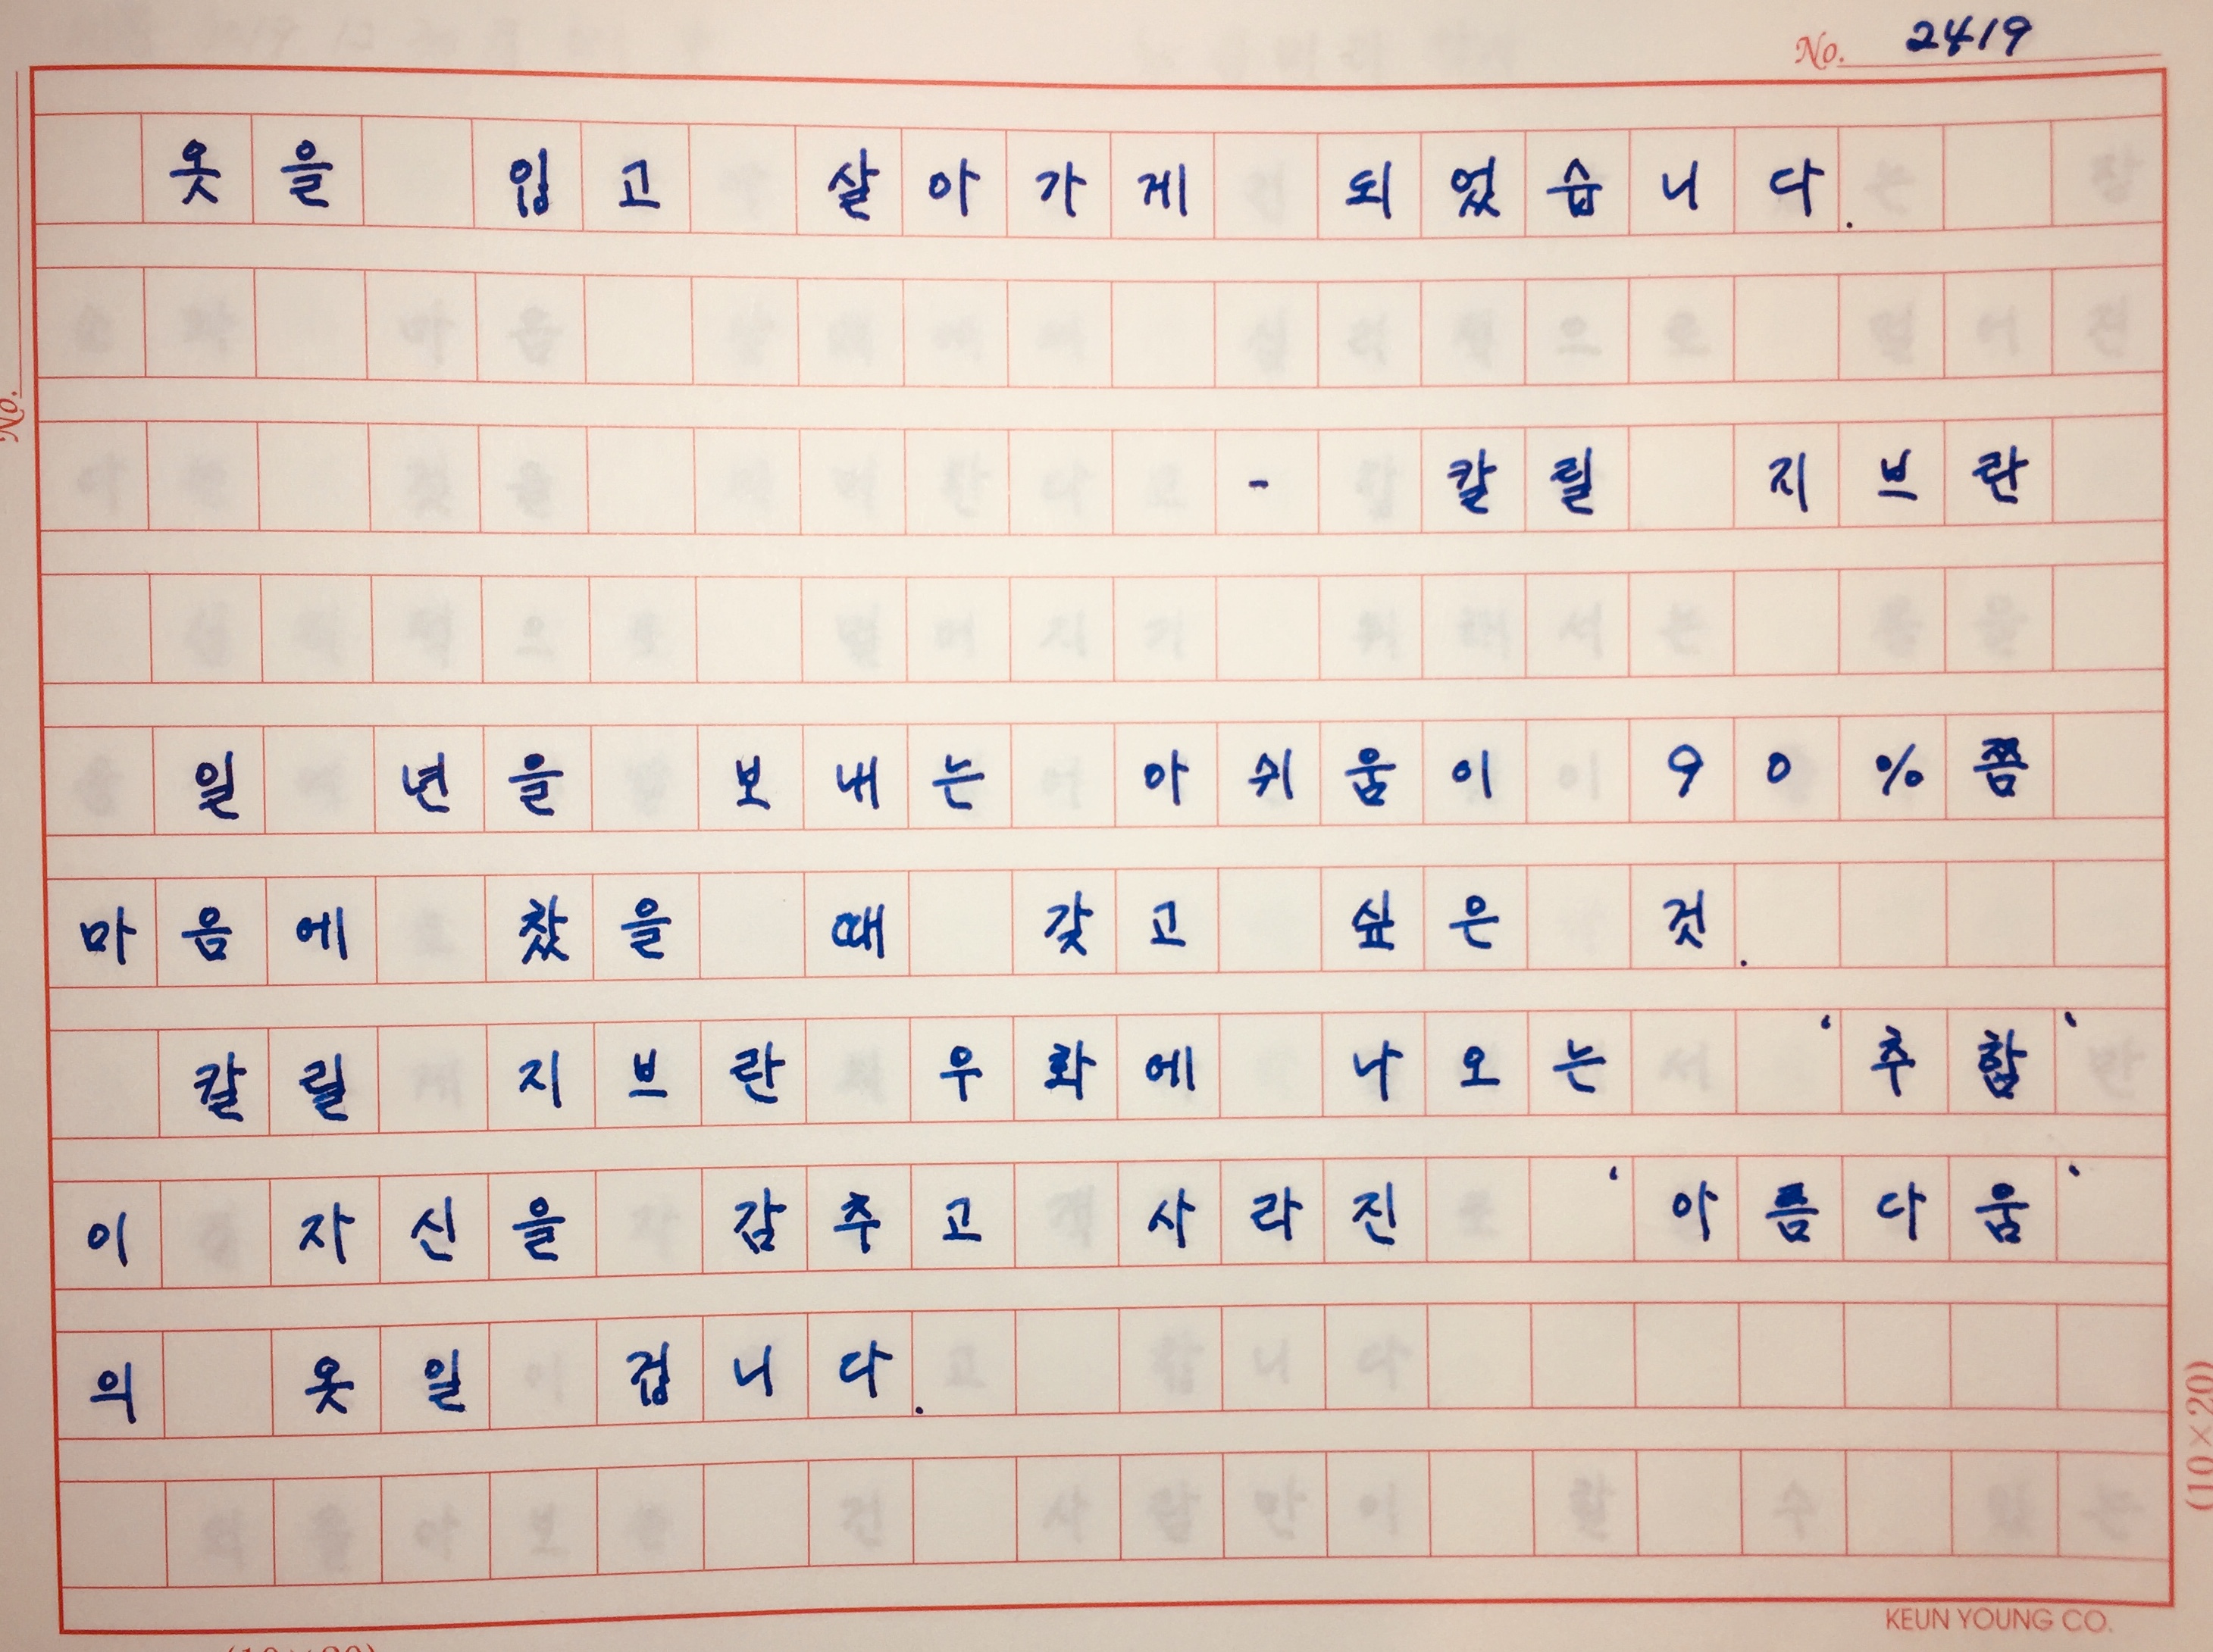 No. 2419
옷을 입고 살아가게 되었습니다.
- 칼릴 지브란
No.
일 년을 보내는 아쉬움이 90%쯤
마음에 찼을 때 갖고 싶은 것.
칼릴 지브란 우화에 나오는 '추함'
이 자신을 감추고 사라진 '아름다움'
의 옷일 겁니다.
(10×20)
KEUN YOUNG CO.
(10×20)